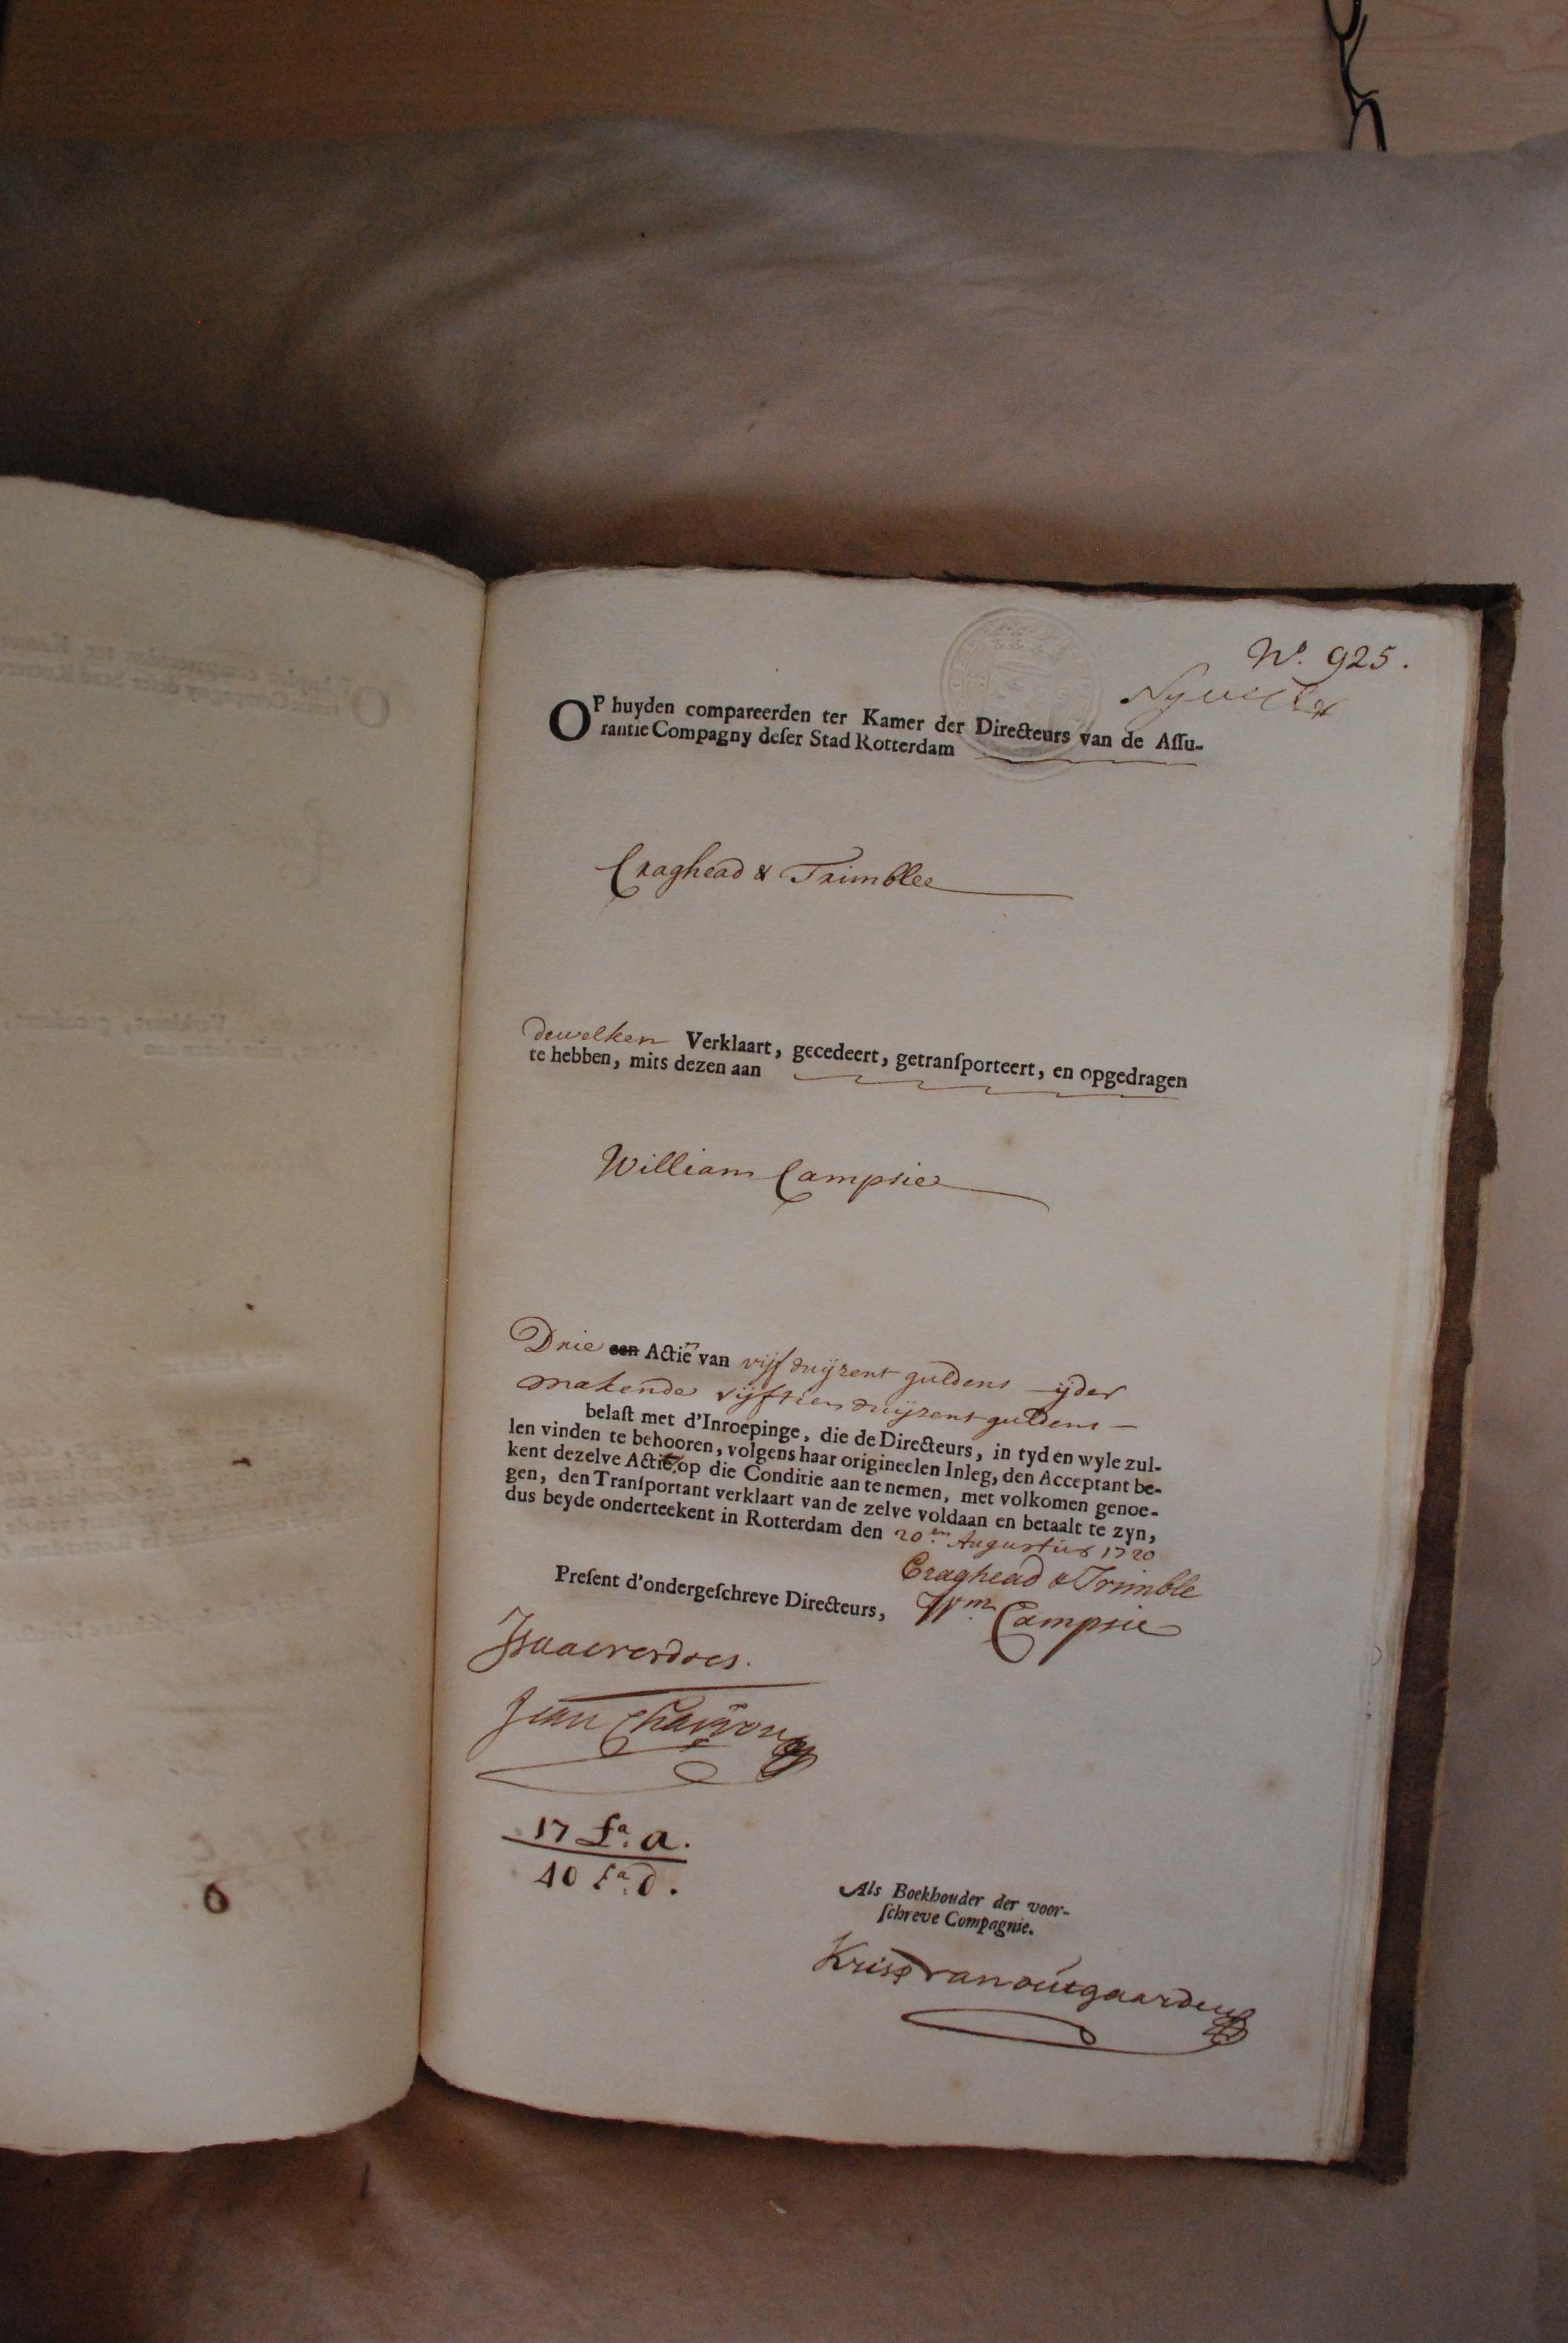 No. 925.
OP huyden compareerden ter Kamer der Directeurs van de Assu-
rantie Compagny deser Stad Rotterdam
Craghead & Trimblee
dewelken Verklaart, gecedeert, getransporteert, en opgedragen
te hebben, mits dezen aan
William Campsie
Drie een Actiën van vijf duijzent guldens ijder
makende vijftien duijzent guldens
belast met d'Inroepinge, die de Directeurs, in tyd en wyle zul-
len vinden te behooren, volgens haar origineelen Inleg, den Acceptant be-
kent dezelve Actie op die Conditie aan te nemen, met volkomen genoe-
gen, den Transportant verklaart van de zelve voldaan en betaalt te zyn,
dus beyde onderteekent in Rotterdam den 20en. Augustus 1720
Craghead & Trimble
Present d'ondergeschreve Directeurs, Wm. Campsie
Isaac verdoes.
Jean Chaigon
17 fa. a.
40 fa. d.
Als Boekhouder der voor-
schreve Compagnie.
Kris van outgaarden